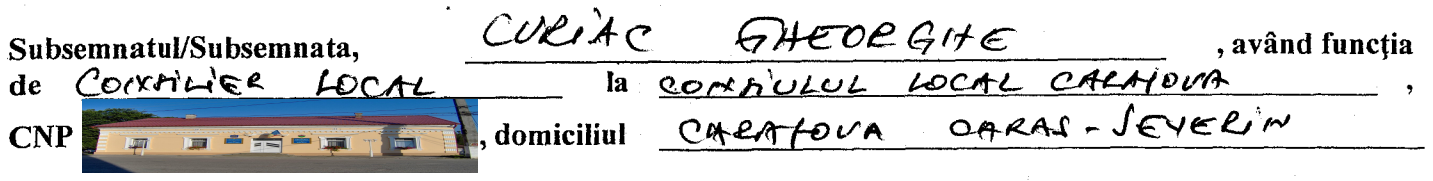 Subsemnatul/Subsemnata, CURIAC GHEORGHE , având funcția
de CONSILIER LOCAL la CONSIULUL LOCAL CARAȘOVA ,
CNP , domiciliul CARAȘOVA CARAS-SEVERIN